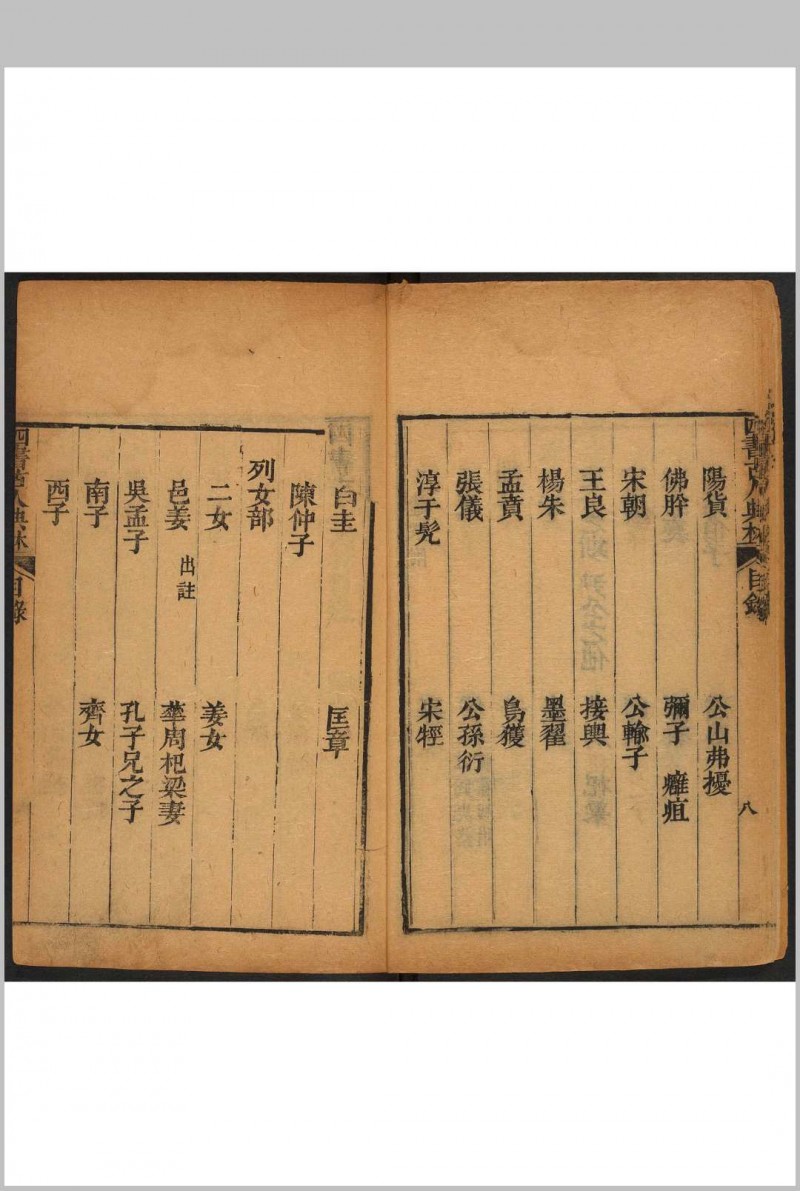 四書古人典林 目錄
八
陽貨 公山弗擾
佛肸 彌子 癰疽
宋朝 公輸子
王良 接輿
楊朱 墨翟
孟賁 烏獲
張儀 公孫衍
淳于髠 宋牼
白圭 匡章
陳仲子
列女部
二女 姜女
邑姜 出註 華周杞梁妻
吳孟子 孔子兄之子
南子 齊女
西子
四書古人典林 目錄